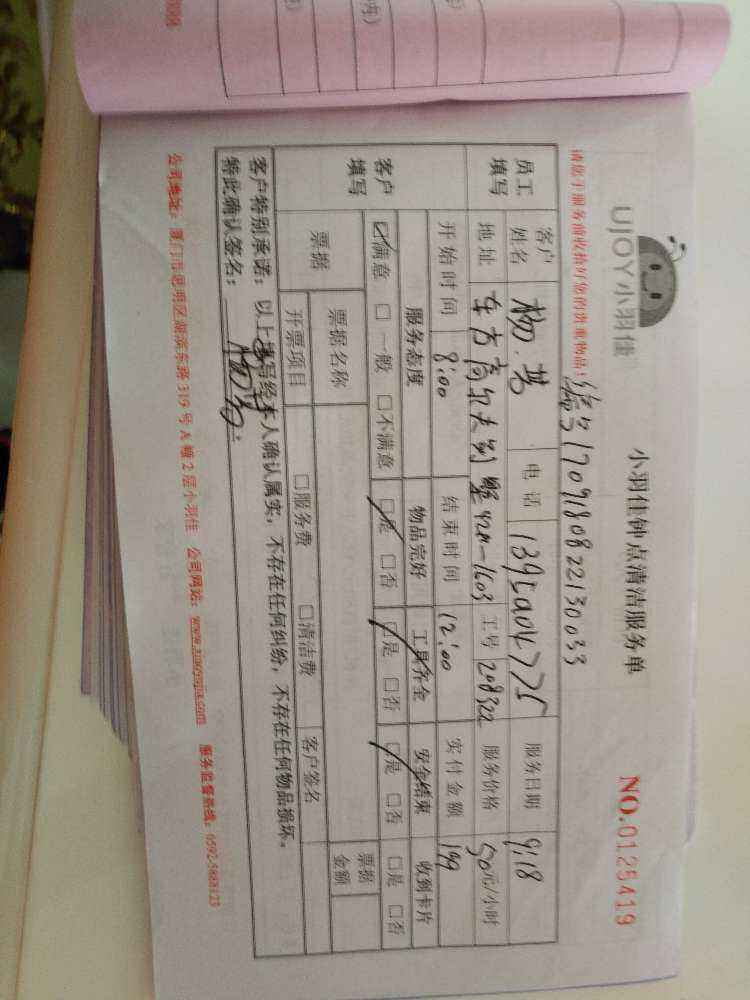 UJOY小羽佳
小羽佳钟点清洁服务单
NO.0125419
请您于服务前收拾好您的贵重物品！
编号1709180822130033
员工填写 客户姓名 杨 电话 服务日期 9.18
地址 东方高尔夫别墅 42#-1603 工号 208322 服务价格 50元/小时
开始时间 8:00 结束时间 12:00 实付金额 199
客户填写 服务态度 物品完好 工具齐全 安全结束 收到卡片
☑满意 □一般 □不满意 ☑是 □否 ☑是 □否 ☑是 □否 □是 □否
票据 票据名称 票据金额
开票项目 □服务费 □清洁费 客户签名
客户特别承诺：以上填写经本人确认属实，不存在任何纠纷，不存在任何物品损坏。
特此确认签名：
公司地址：厦门市思明区湖滨东路319号A幢2层小羽佳 公司网站：www.xiaoyujia.com 服务监督热线：0592-5888123